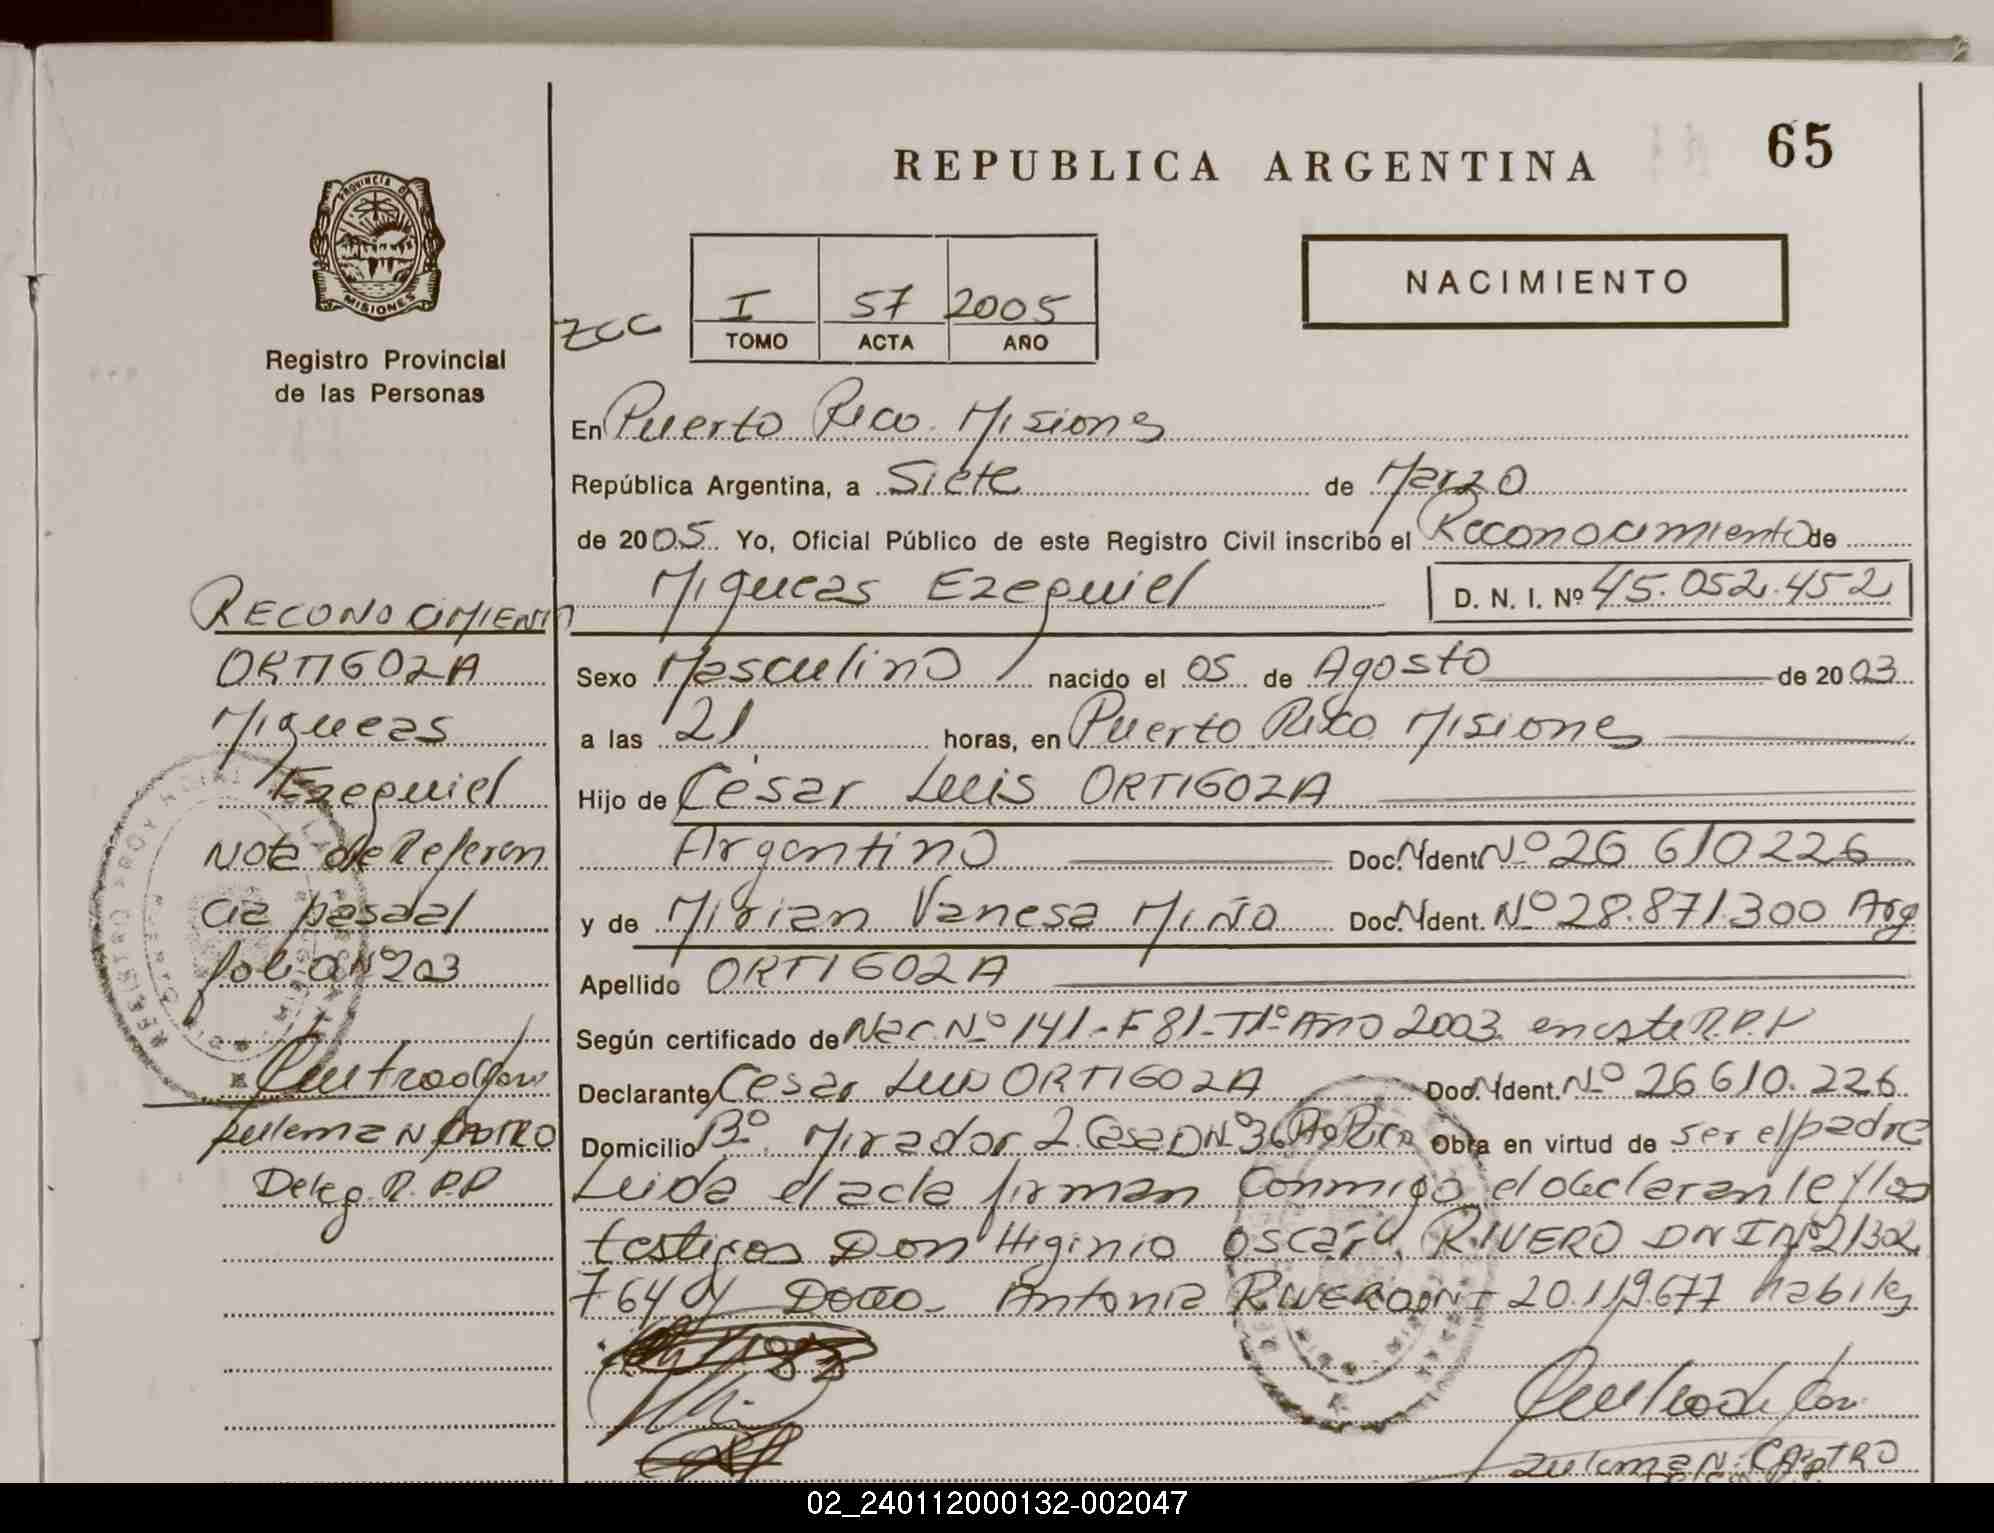 REPUBLICA ARGENTINA
65
PROVINCIA DE
MISIONES
Registro Provincial
de las Personas
I 57 2005
TOMO ACTA AÑO
NACIMIENTO
En Puerto Rico Misiones
República Argentina, a Siete de Marzo
de 2005 Yo, Oficial Público de este Registro Civil inscribo el Reconocimiento de
Miqueas Ezequiel D. N. I. Nº 45.052.452
Sexo Masculino nacido el 05 de Agosto de 2003
a las 21 horas, en Puerto Rico Misiones
Hijo de César Luis ORTIGOZA
Argentino Doc. Ident Nº 26 610226
y de Mirian Vanesa MIÑO Doc. Ident. Nº 28.871.300 Arg
Apellido ORTIGOZA
Según certificado de Nac. Nº 141-F 81-T1º Año 2003 en este R.P.P
Declarante Cesar Luis ORTIGOZA Doc. Ident. Nº 26610.226
Domicilio Bº Mirador 2 Casa D Nº 36 Pto Rico Obra en virtud de ser el padre
Leida el acta firman conmigo el declarante y los
testigos Don Higinio Oscar RIVERO DNI Nº 21302
764 y Doña Antonia RIVERO DNI 20.119677 habiles
Zulema N. CASTRO
RECONOCIMIENTO
ORTIGOZA
Miqueas
Ezequiel
Nota de Referen
cia pasa al
folio Nº 203
Zulema N CASTRO
Deleg. R.P.P
02_240112000132-002047